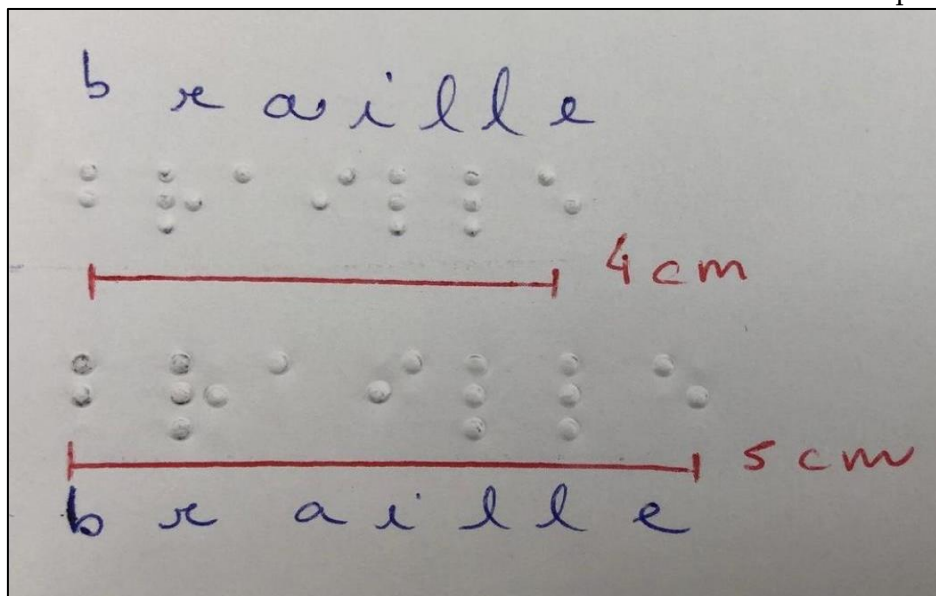 b r a i l l e
⠃ ⠗ ⠁ ⠊ ⠇ ⠇ ⠑
4 cm
⠃ ⠗ ⠁ ⠊ ⠇ ⠇ ⠑
5 cm
b r a i l l e